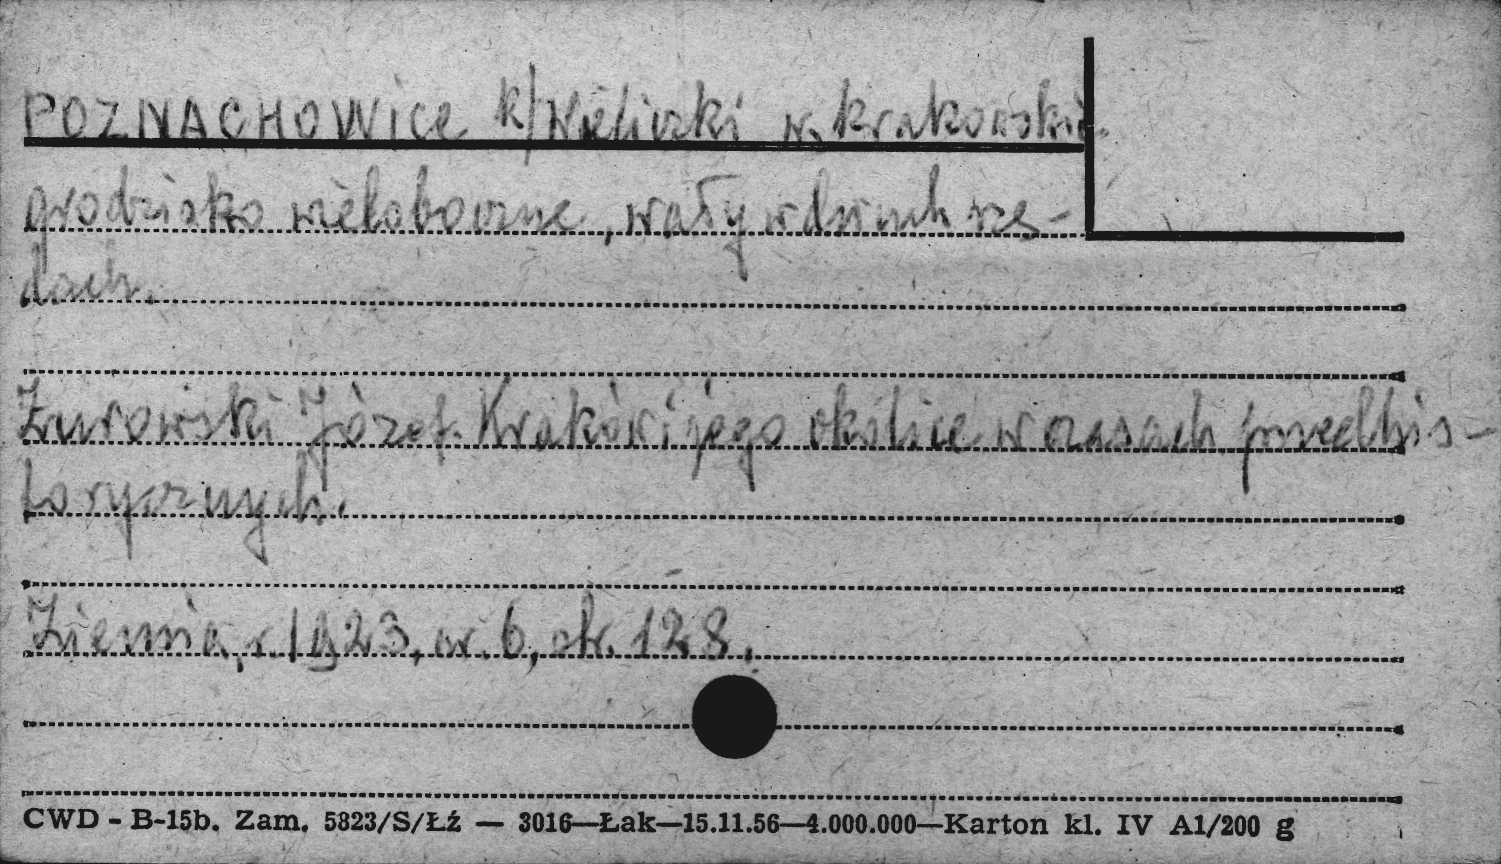 POZNACHOWice k/Wieliczki w. krakowskie
grodzisko wieloboczne, wały w dwuch rzę-
dach.
Żurowski Józef. Kraków i jego okolice w czasach przedhis-
torycznych.
Ziemia, r. 1923, nr. 6, str. 128.
CWD - B-15b. Zam. 5823/S/Łź — 3016—Łak—15.11.56—4.000.000—Karton kl. IV A1/200 g